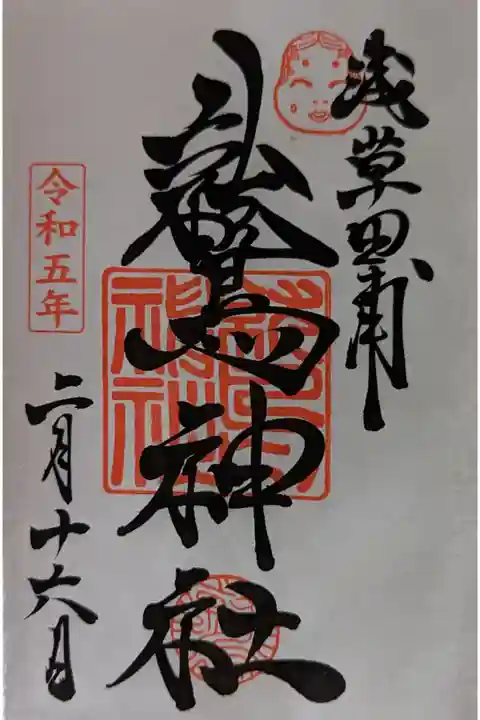 浅草田甫
鷲神社
令和五年
二月十六日